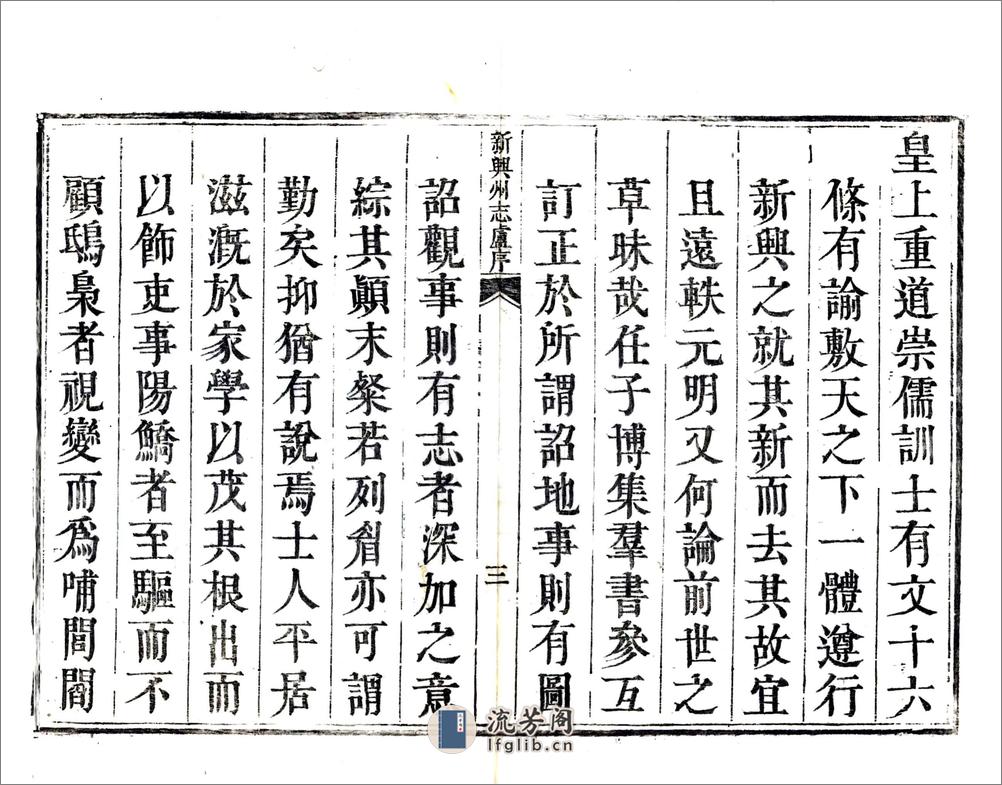 皇上重道崇儒訓士有文十六
條有諭敷天之下一體遵行
新興之就其新而去其故宜
且遠軼元明又何論前世之
草昧哉任子博集羣書參互
訂正於所謂詔地事則有圖
新興州志盧序
三
詔觀事則有志者深加之意
綜其顚末粲若列眉亦可謂
勤矣抑猶有說焉士人平居
滋漑於家學以茂其根出而
以飾吏事陽鱎者至驅而不
顧鴟梟者視變而爲哺閭閻
流芳阁
lfglib.cn